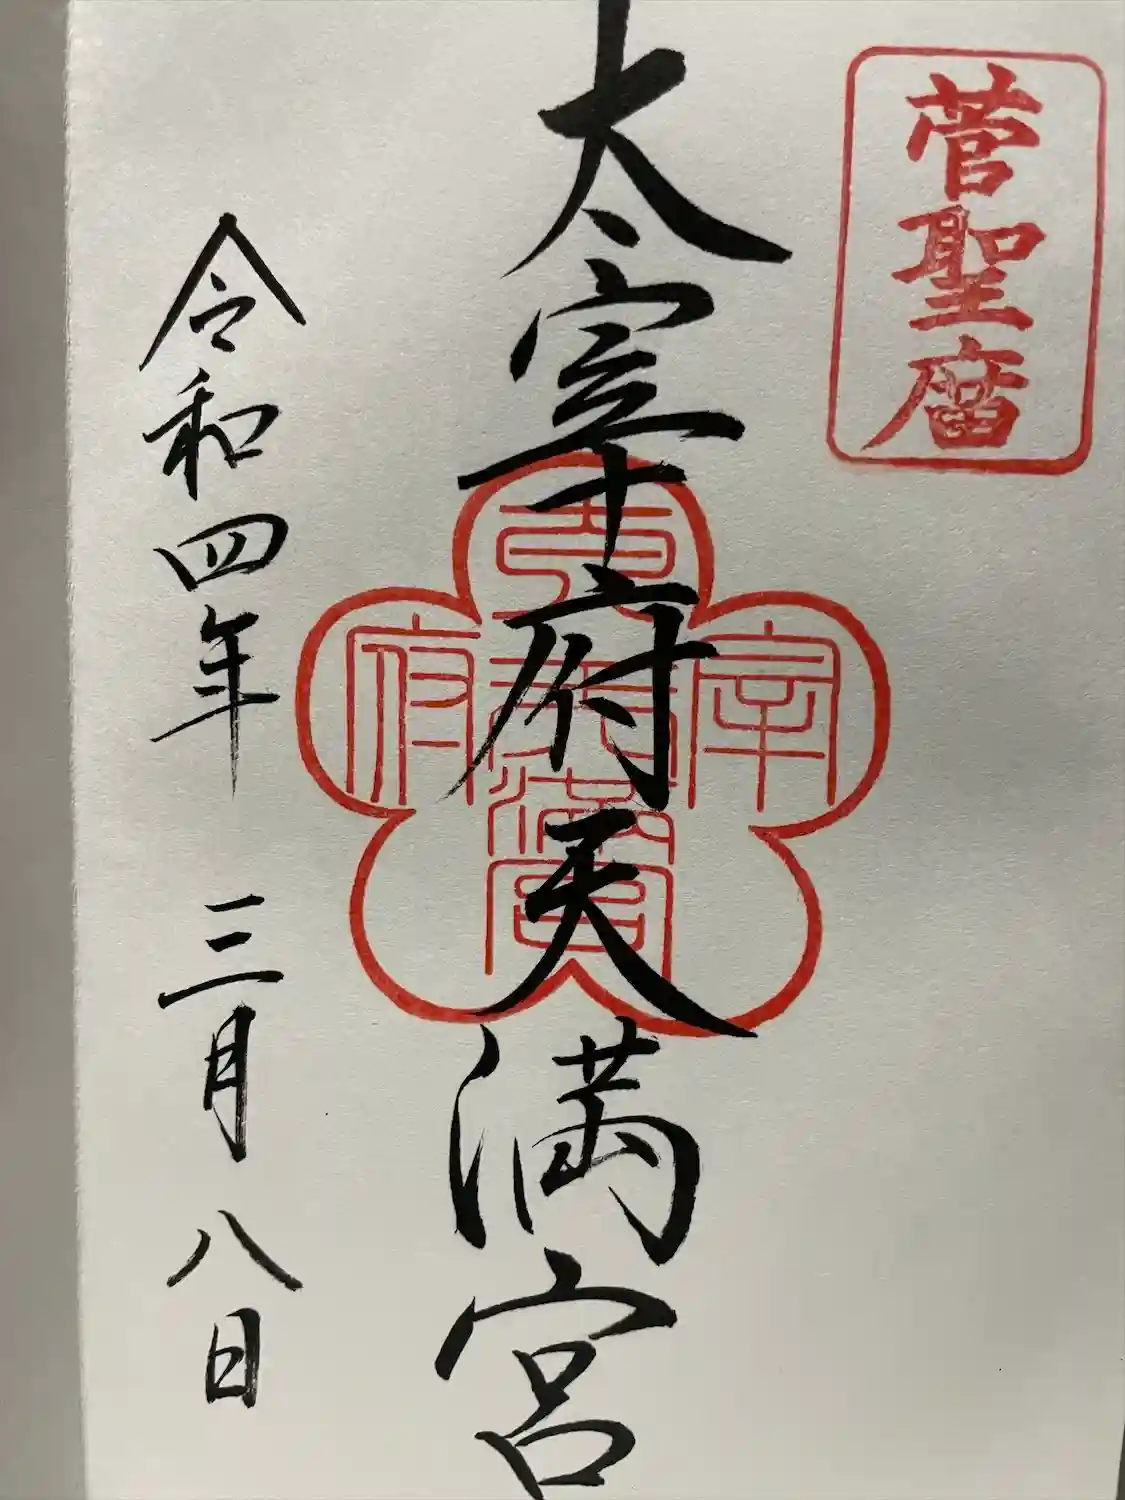 菅聖庿
太宰府天満宮
太宰府天満宮
令和四年 三月 八日